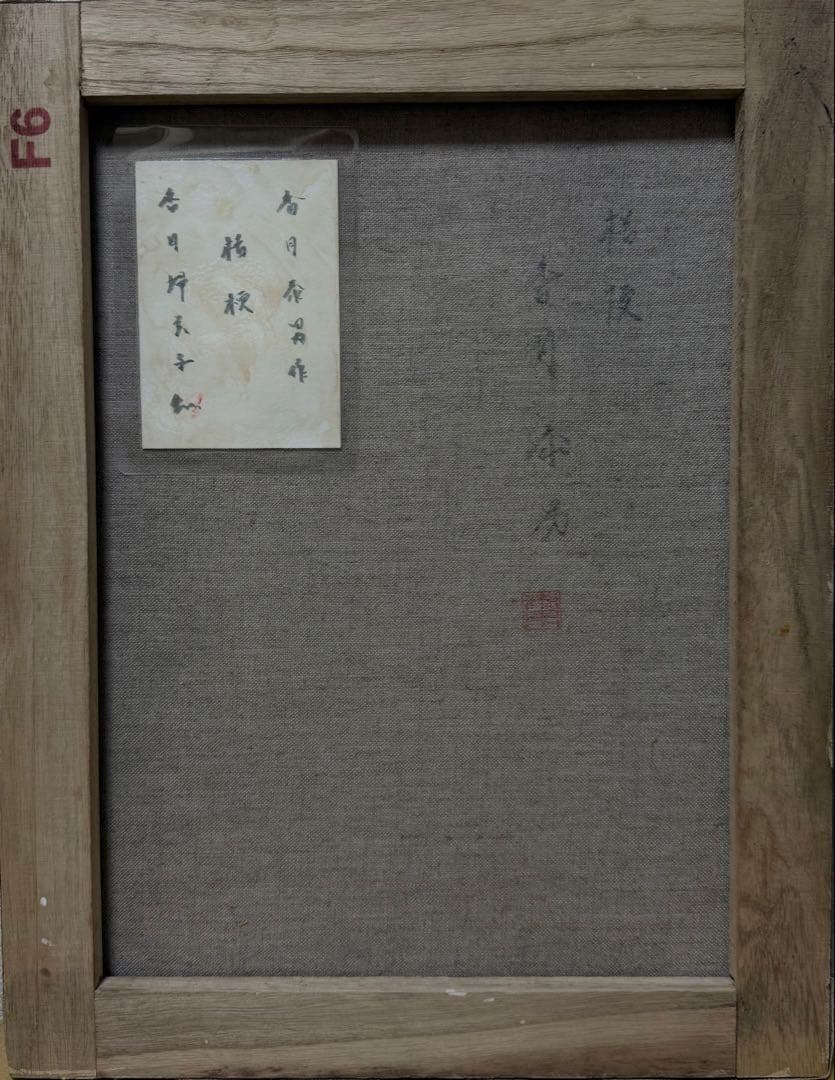 F6
香月泰男作
桔梗
香月婦美子
桔梗
香月泰男